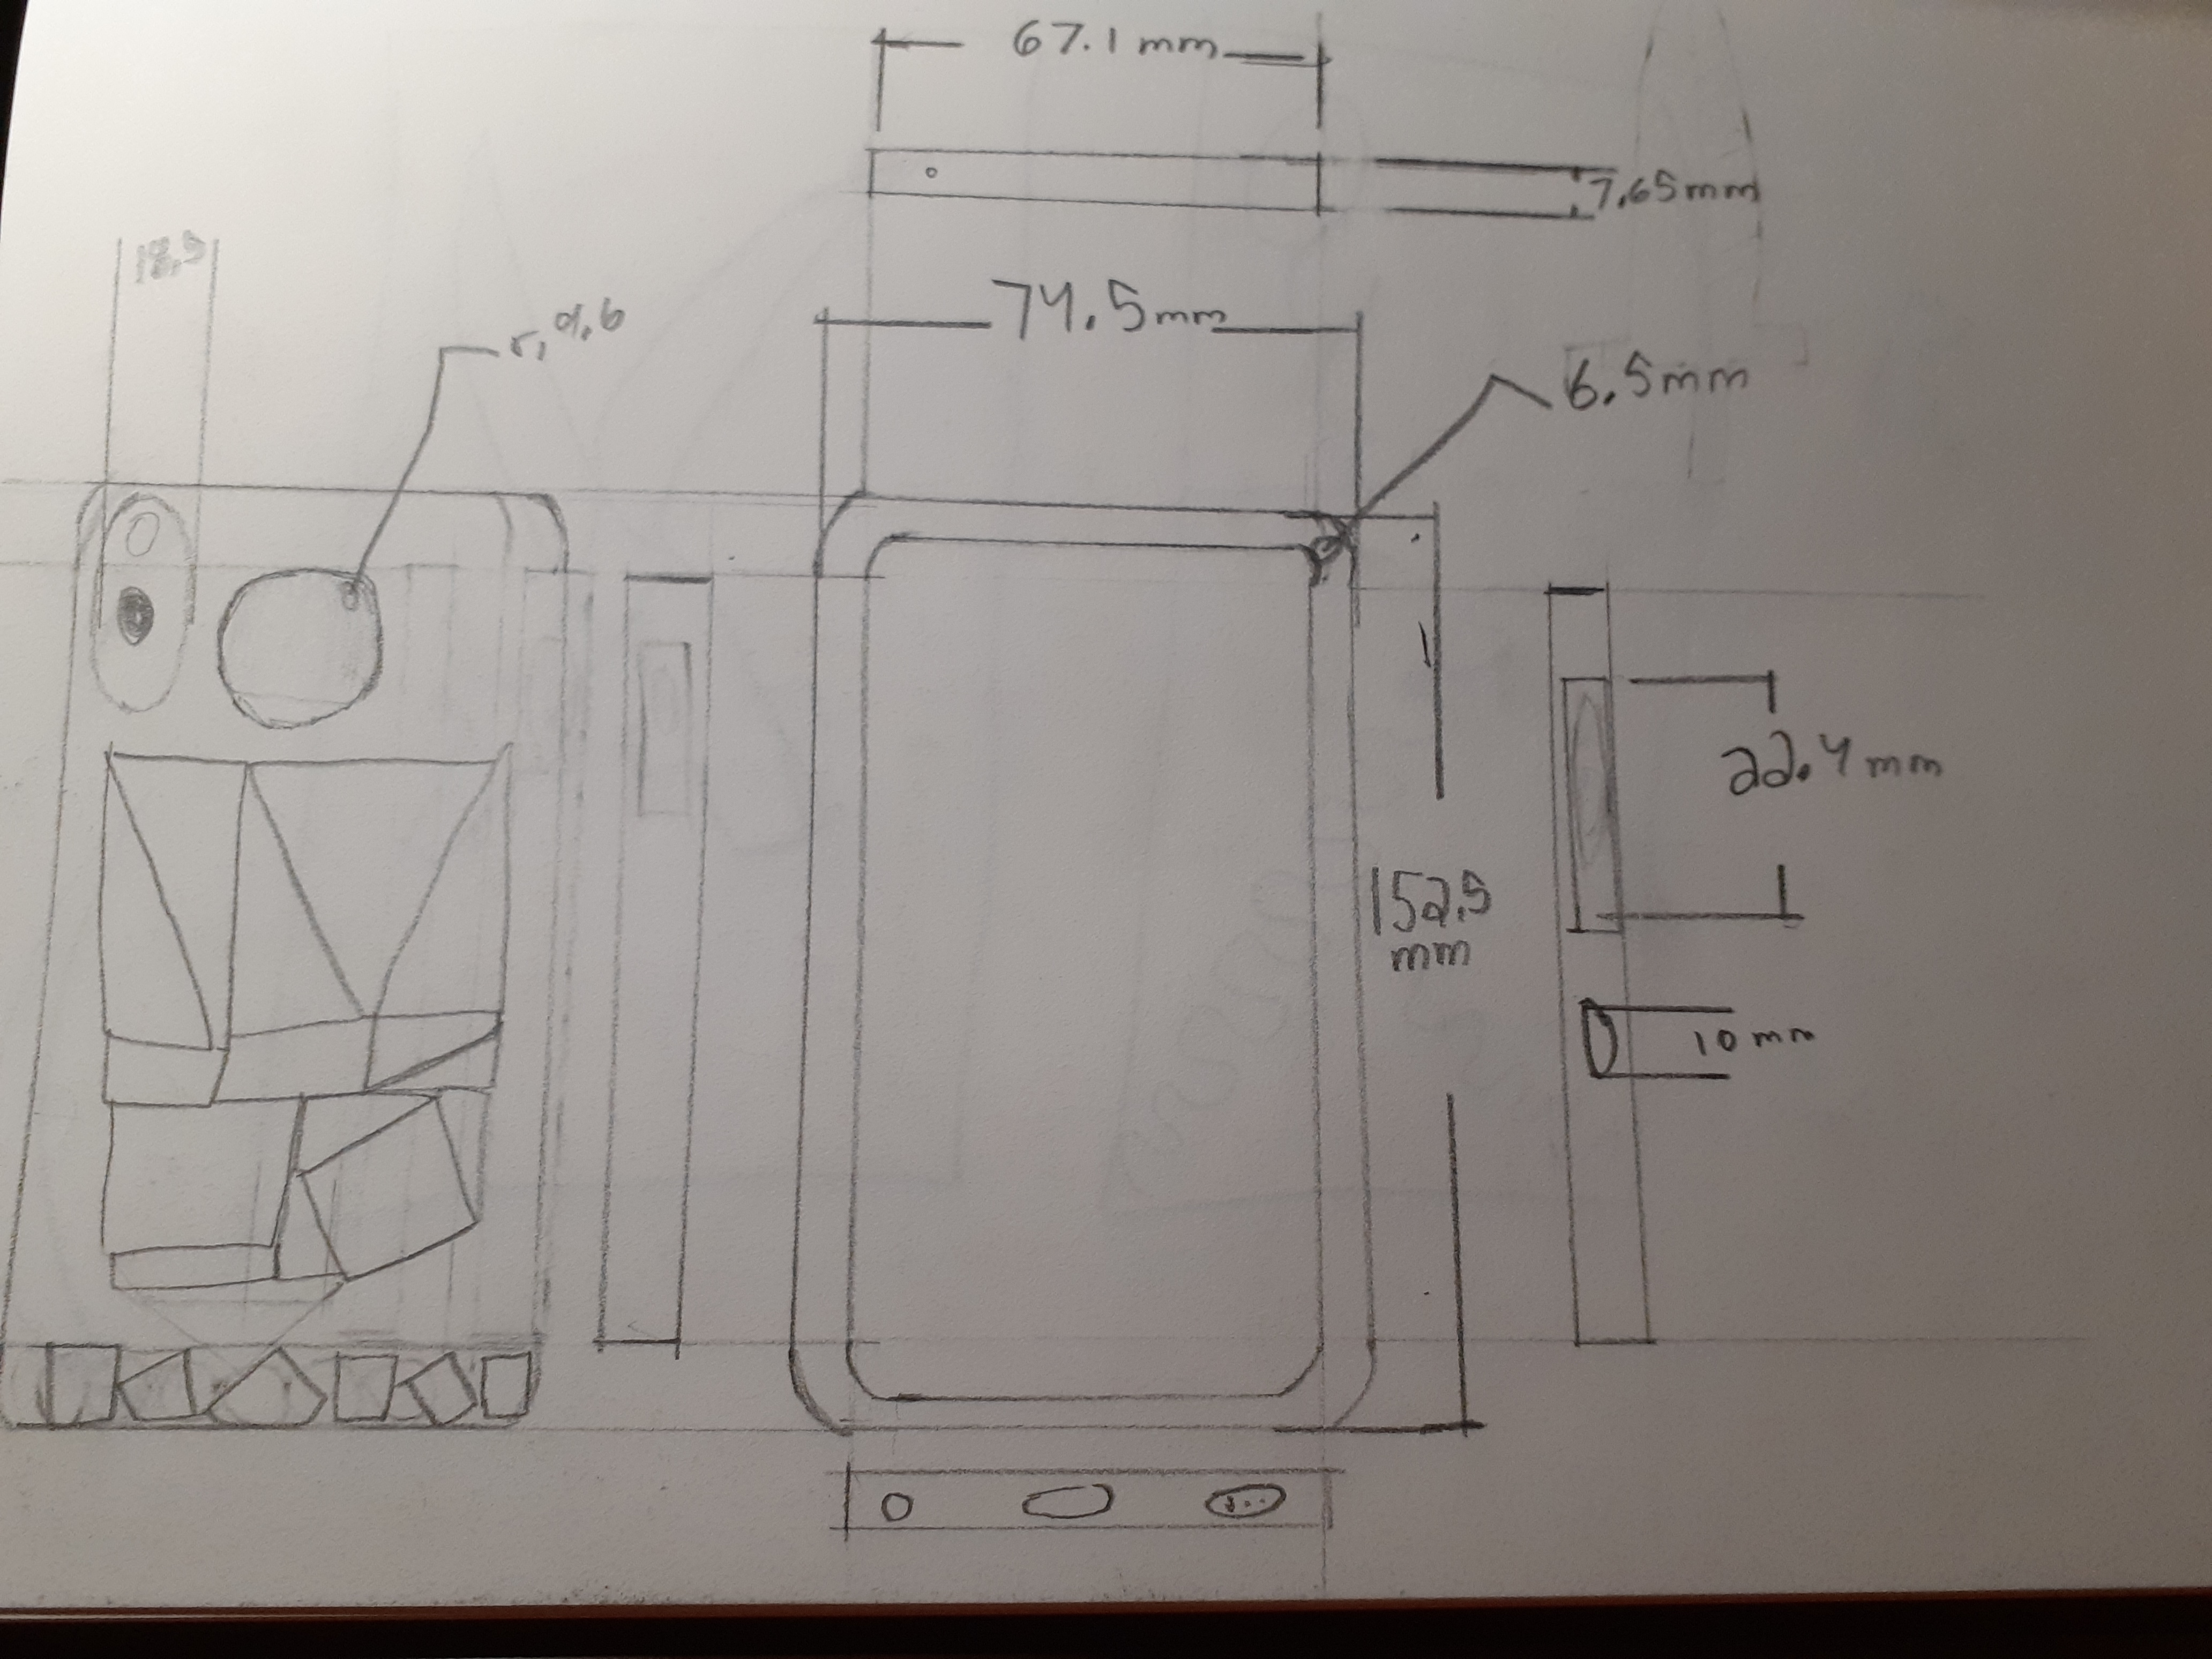 67.1 mm
7.65mm
18.9
74.5mm
6.5mm
22.4mm
152.5
mm
10 mm